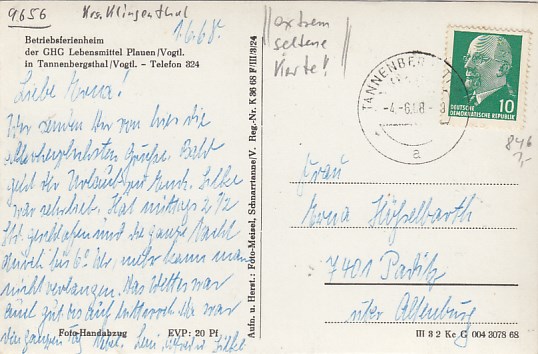 9656
Krs. Klingenthal
Betriebsferienheim
der GHG Lebensmittel Plauen/Vogtl.
in Tannenbergsthal/Vogtl. - Telefon 324
Liebe Erna!
Wir senden Dir von hier die
allerherzlichsten Grüsse. Bald
geht der Urlaub zu Ende. Silke
war sehr lieb. Hat mittags 2 1/2
Std. geschlafen und die ganze Nacht
durch bis 6 Uhr, mehr kann man
nicht verlangen. Das Wetter war
auch gut bis auf
Nebel. Leni, Silke
Foto-Handabzug EVP: 20 Pf
Aufn. u. Herst.: Foto-Meisel, Schnarrtanne/V. Reg.-Nr. K 36 68 F/III/3/24
extrem
seltene
Karte!
TANNENBER
-4.-6.68.-8
a
DEUTSCHE
DEMOKRATISCHE REPUBLIK
10
846
Frau
Erna Höselbarth
7401 Paditz
über Altenburg
III 3 2 Ke G 004 3078 68